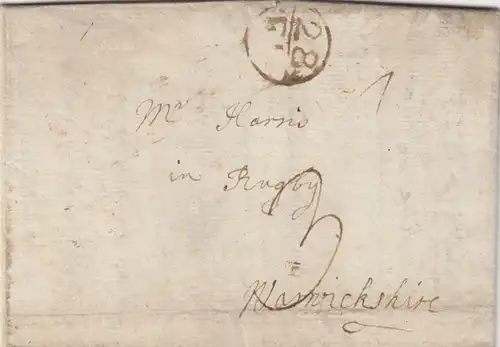 28
Mr Harris
in Rugby
3
Warwickshire